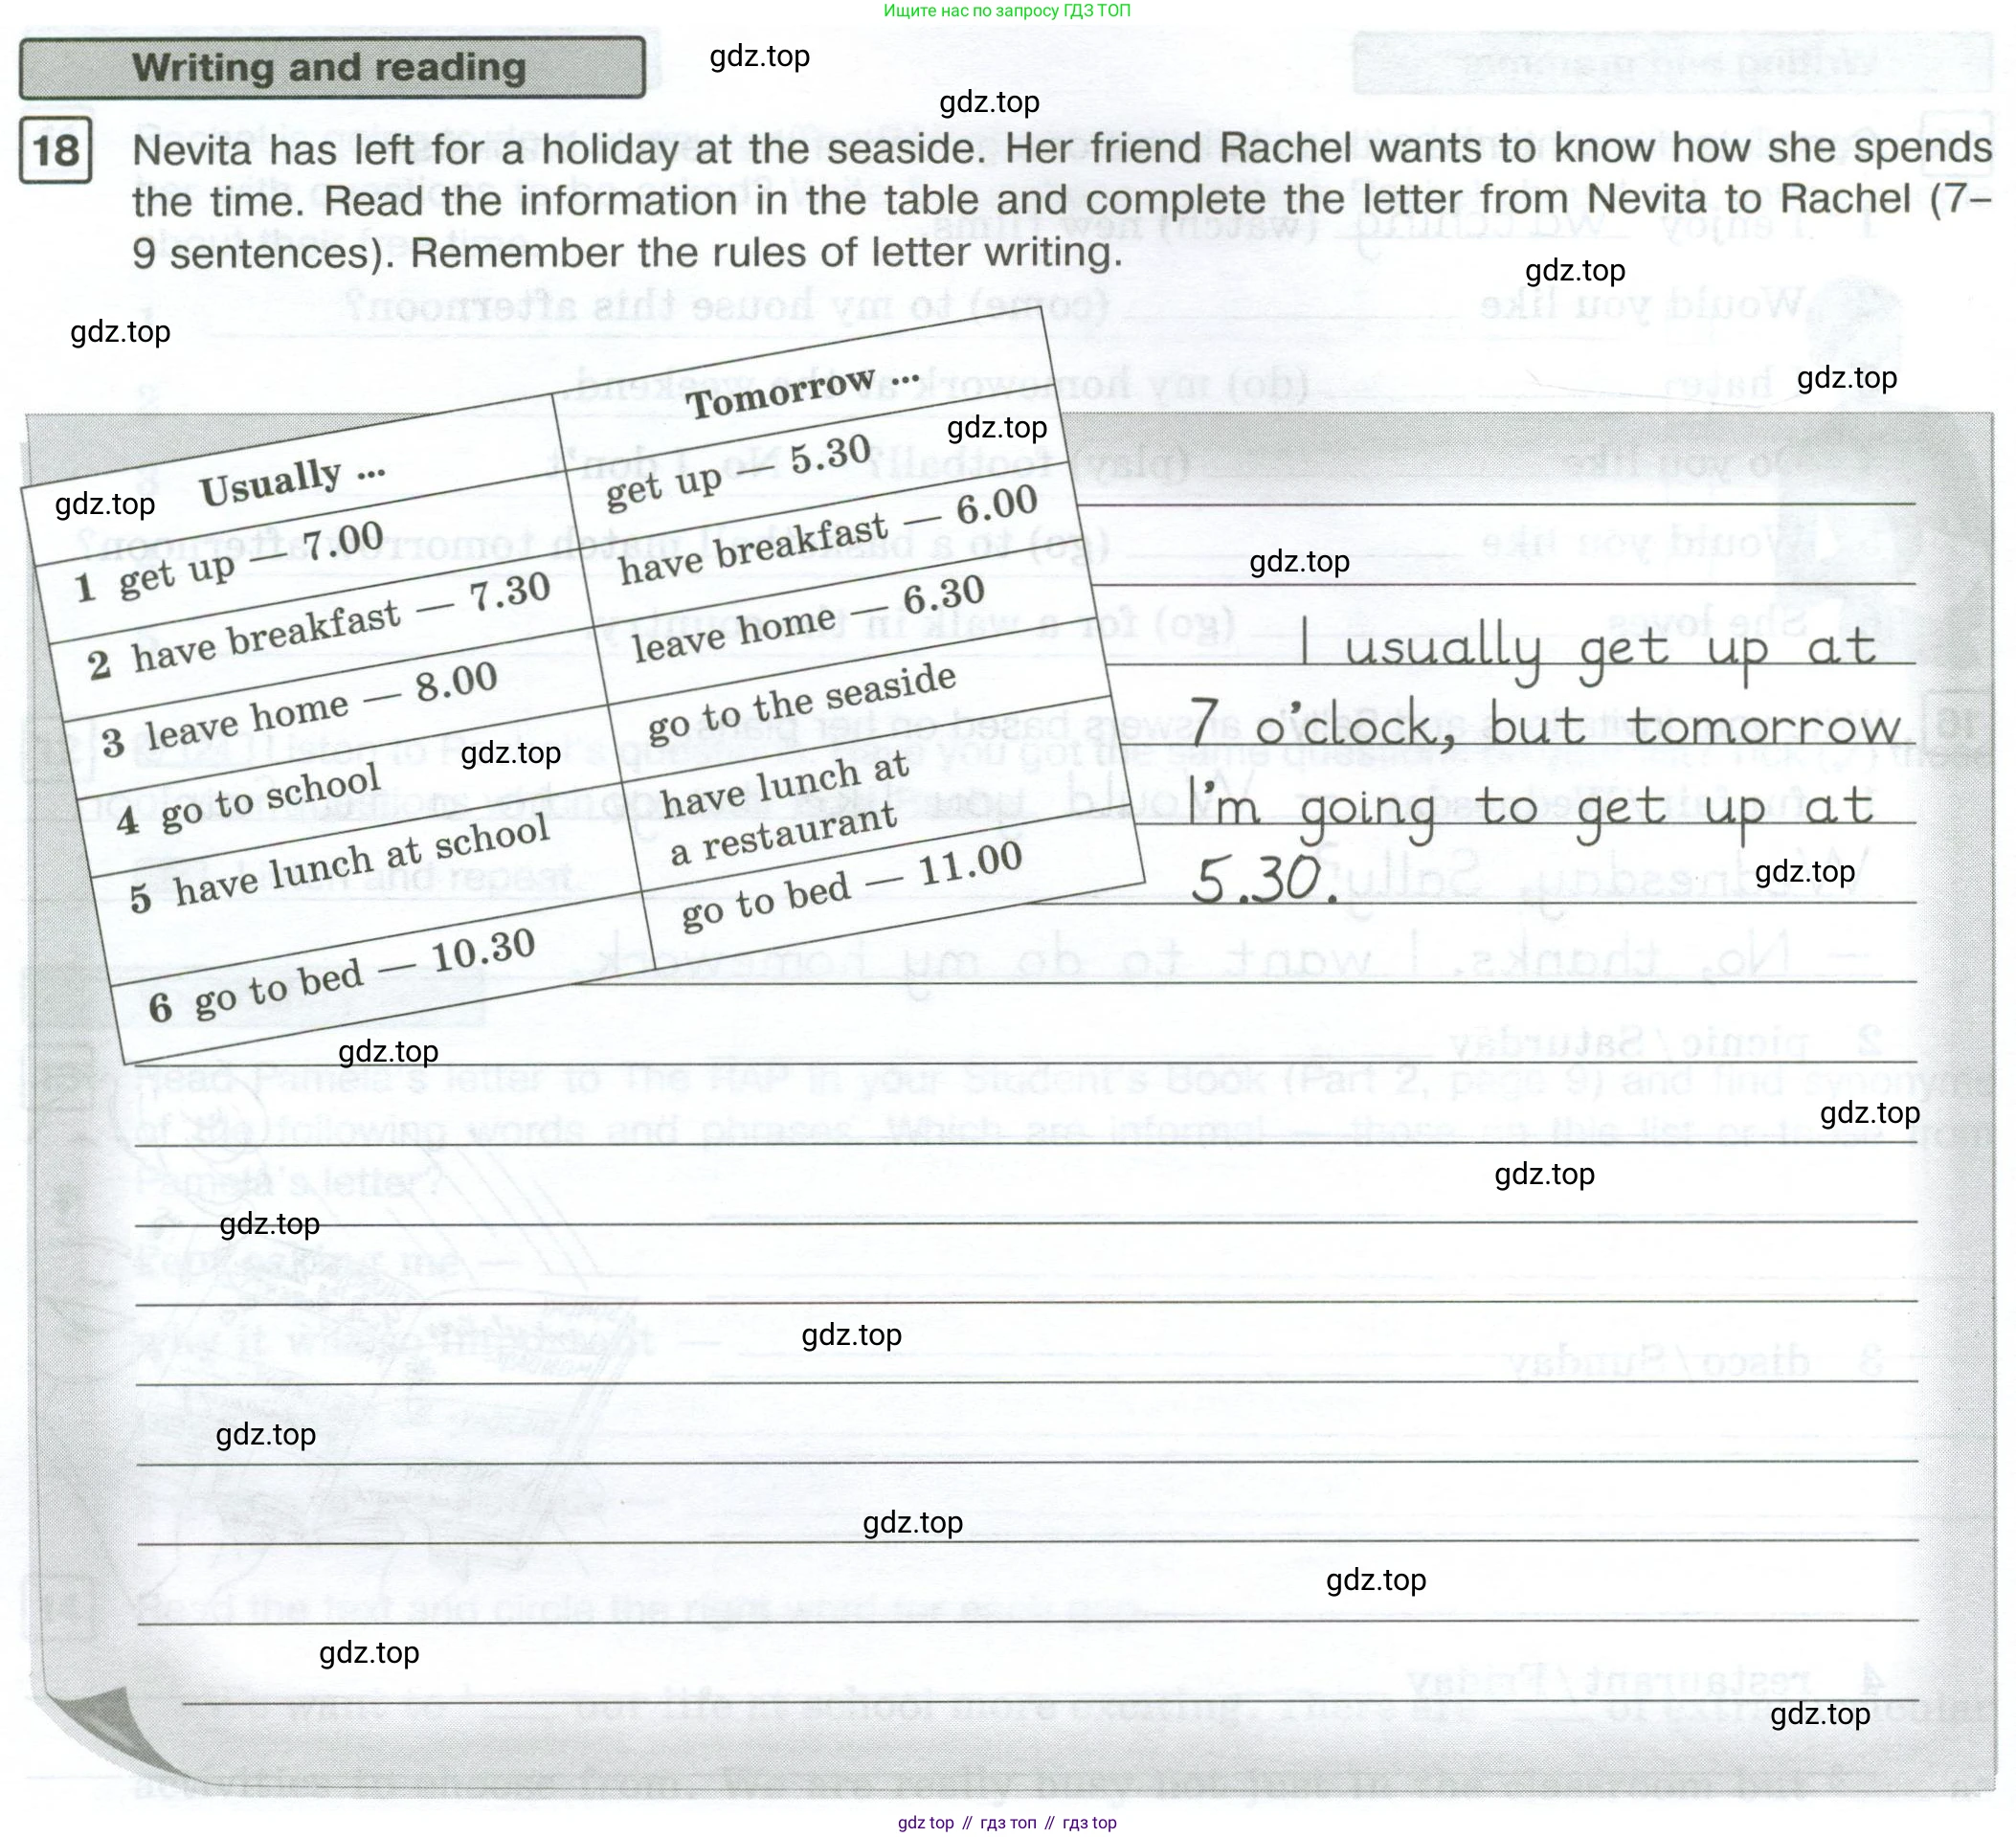 Ищите нас по запросу ГДЗ ТОП
Writing and reading
gdz.top
gdz.top
18 Nevita has left for a holiday at the seaside. Her friend Rachel wants to know how she spends
the time. Read the information in the table and complete the letter from Nevita to Rachel (7–
9 sentences). Remember the rules of letter writing.
gdz.top
gdz.top
gdz.top
Usually ...
Tomorrow ...
gdz.top
gdz.top
1 get up — 7.00
get up — 5.30
2 have breakfast — 7.30
have breakfast — 6.00
3 leave home — 8.00
leave home — 6.30
4 go to school
go to the seaside
5 have lunch at school
have lunch at
a restaurant
6 go to bed — 10.30
go to bed — 11.00
gdz.top
gdz.top
I usually get up at
7 o'clock, but tomorrow
I'm going to get up at
5.30.
gdz.top
gdz.top
gdz.top
gdz.top
gdz.top
gdz.top
gdz.top
gdz.top
gdz.top
gdz.top
gdz.top
gdz top // гдз топ // гдз top